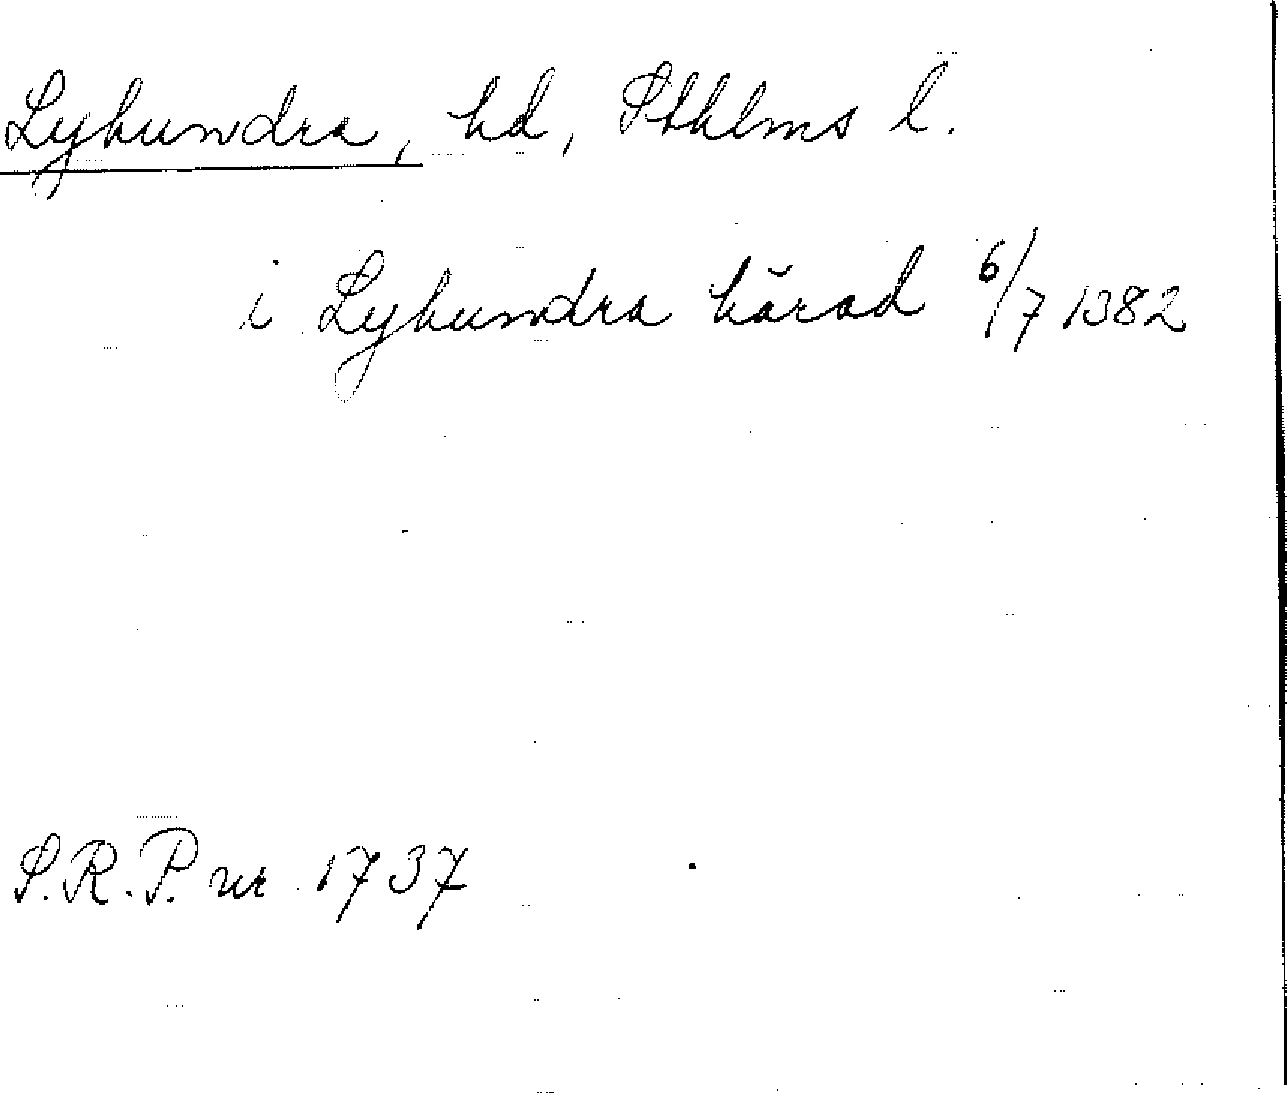 Lyhundra, hd, Sthlms l.
i Lyhundra härad 6/7 1382
S.R.P. nr 1737